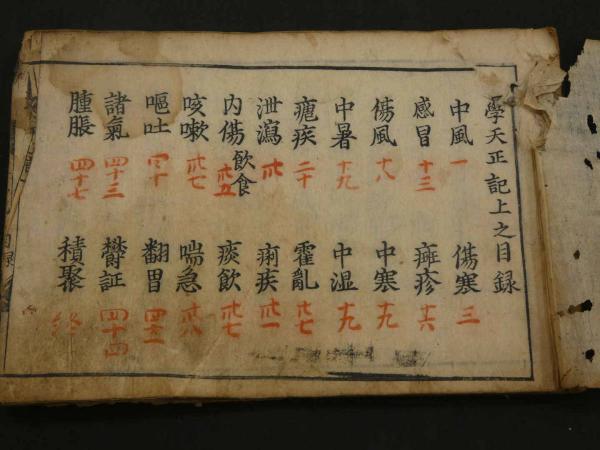 學天正記上之目録
中風 一
傷寒 三
感冒 十三
癍疹 十六
傷風 十八
中寒 十九
中暑 十九
中湿 十九
瘧疾 二十
霍亂 廿七
泄瀉 廿
痢疾 廿一
内傷飲食 廿五
痰飲 廿七
咳嗽 廿七
喘急 廿八
嘔吐 四十
翻胃 四十二
諸氣 四十三
欝証 四十四
腫脹 四十七
積聚 終